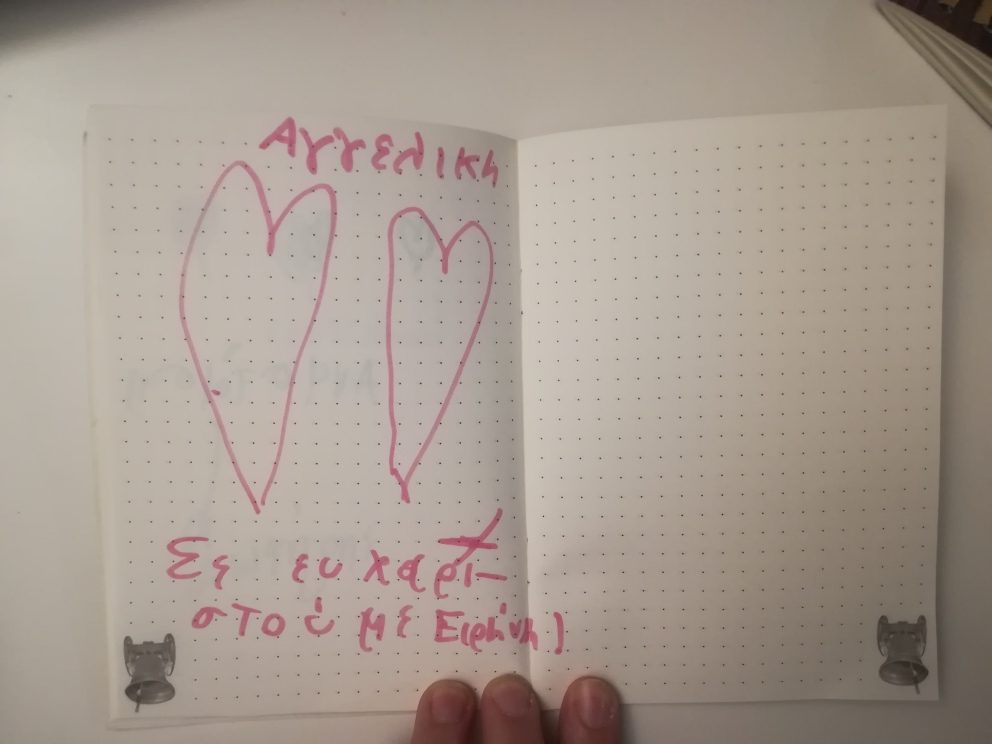 Αγγελικη
Σε ευ χαρι–
στού με Ειρήνη)